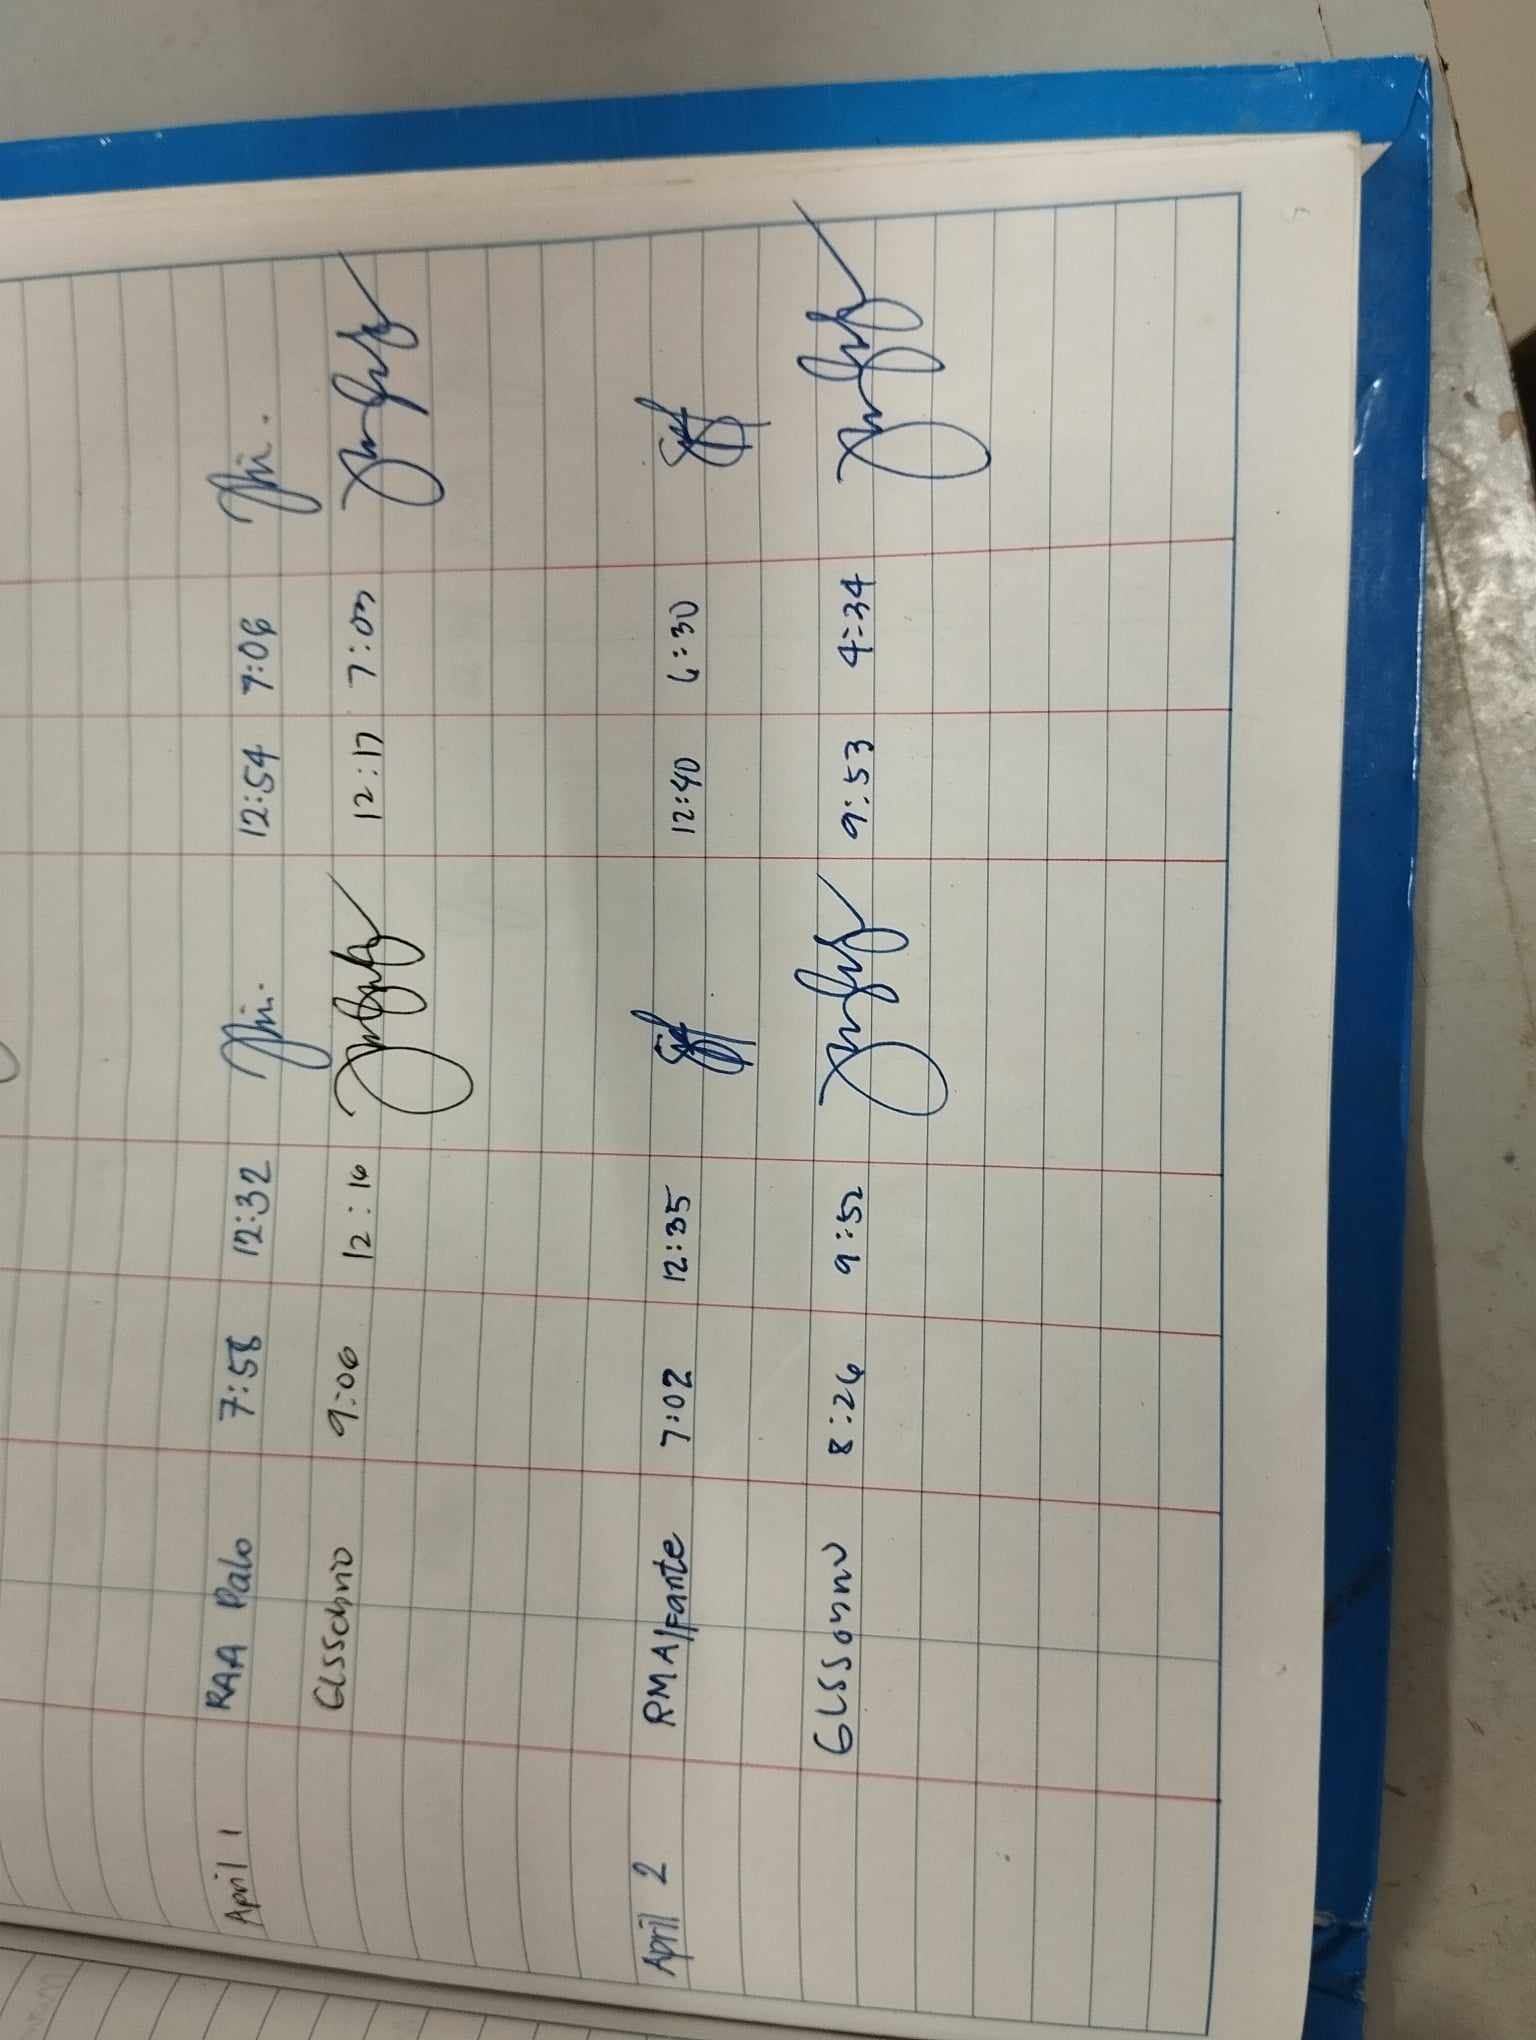 April 1 RAA Palo 7:58 12:32 12:54 7:06
9:06 12:16 12:17 7:03
April 2 RMAlfante 7:02 12:35 12:40 6:30
8:26 9:52 9:53 4:34